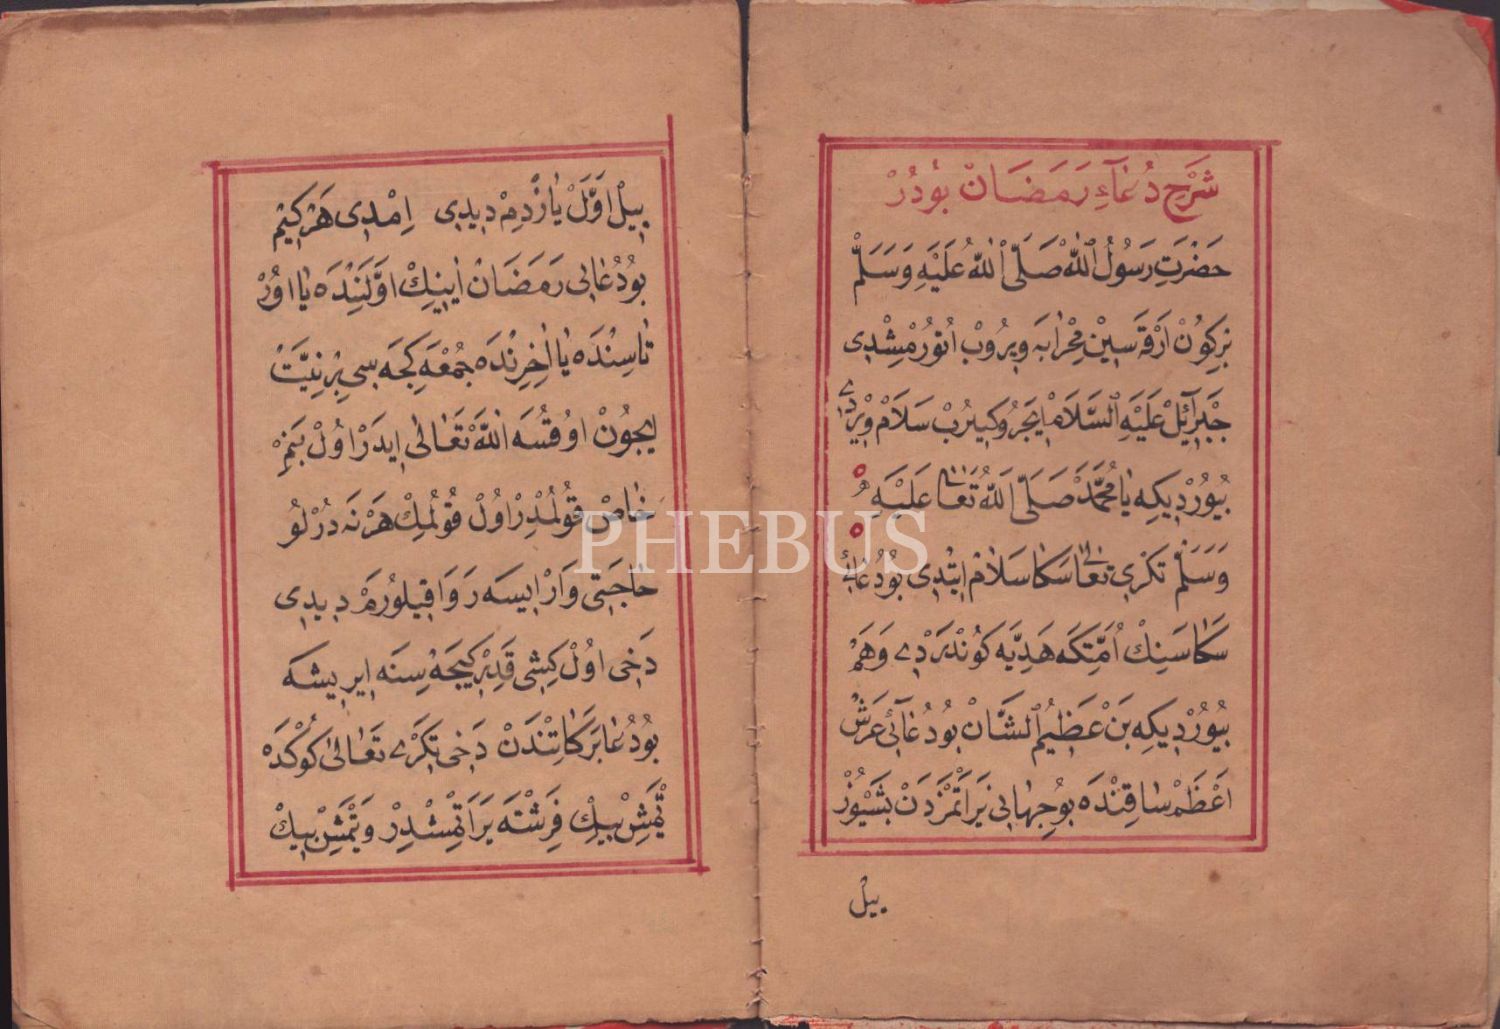 شَرْحِ دُعَآءِ رَمَضَانْ بُودُرْ
حَضْرَتِ رَسُولُ اللّٰهْ صَلَّى اللّٰهُ عَلَيْهِ وَسَلَّمْ
بِرْكُونْ اَرْقَهسِينْ مِحْرَابَه وِيرُوبْ اُتُورْمِشْدِى
جَبْرَآئِلْ عَلَيْهِ السَّلَامْ اِيچَرُو كِيرُبْ سَلَامْ وِيرْدِى
بُيُورْدِيكِه يَا مُحَمَّدْ صَلَّى اللّٰهُ تَعَالٰى عَلَيْهِ
وَسَلَّمْ تَكْرِى تَعَالٰى سَكَا سَلَامْ اِيتْدِى بُو دُعَائِ
سَكَا سَنِكْ اُمَّتِكَه هَدِيَّه كُونْدَرْدِى وَهَمْ
بُيُورْدِيكِه بَنْ عَظِيمُ الشَّانْ بُو دُعَآئِى عَرَشْ
اَعْظَمْ سَاقِنْدَه بُو جِهَانِى يَرَاتْمَزْدَنْ بَشْيُوزْ
بِيلْ
PHEBUS
بِيلْ اَوَّلْ يَازْدِمْ دِيدِى اِمْدِى هَرْ كِيمْ
بُو دُعَايِى رَمَضَانْ اَيِينِكْ اَوَّلَنِنْدَه يَا اُورْ
تَاسِنْدَه يَا اٰخِرِنْدَه جُمْعَه كِجَهسِى بِرْ نِيَّتْ
اِيچُونْ اُوقُسَه اللّٰهْ تَعَالٰى اِيدَرْ اُولْ بَنِمْ
خَاصْ قُولُمْدِرْ اُولْ قُولُمِكْ هَرْ نَه دُرْلُو
حَاجَتِى وَارْ اِيسَه رَوَا قِيلُورُمْ دِيدِى
دَخِى اُولْ كِشِى قَدِرْ كِيجَهسِنَه اِيرِيشَه
بُو دُعَا بَرَكَاتِنْدَنْ دَخِى تَكْرِى تَعَالٰى كُوكْدَه
يَتْمِشْ بِيكْ فِرِشْتَه يَرَاتْمِشْدِرْ وَيَتْمِشْ بِيكْ